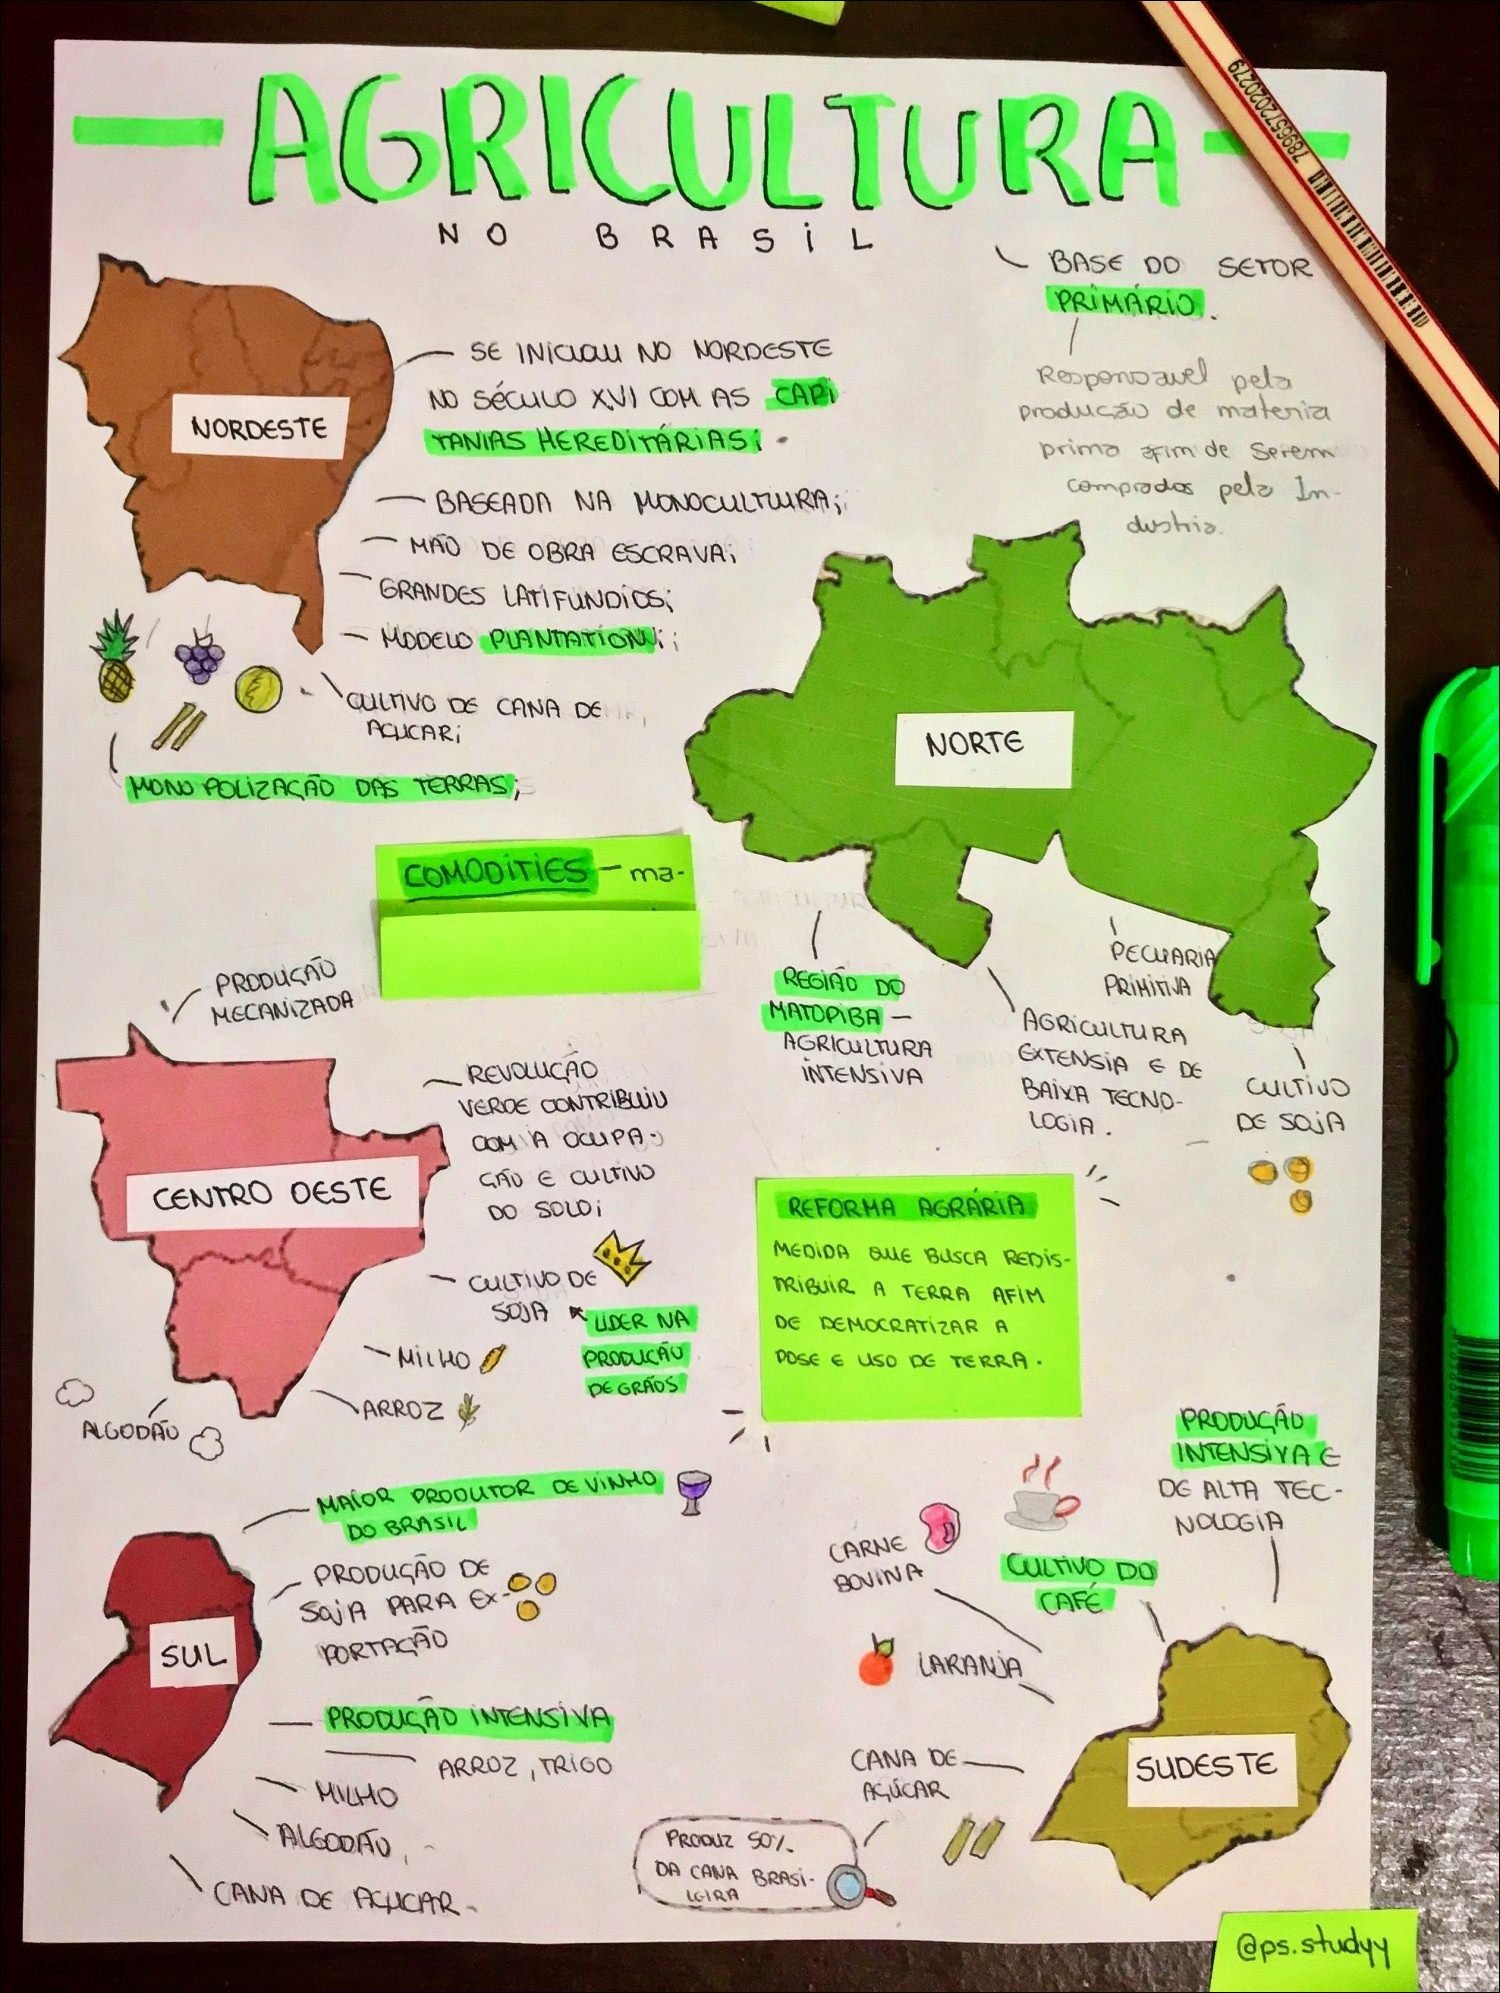 AGRICULTURA
NO BRASIL
BASE DO SETOR
PRIMÁRIO.
Responsavel pela
produção de materia
prima afim de Serem
comprados pela In-
dustria.
NORDESTE
SE INICIOU NO NORDESTE
NO SÉCULO XVI COM AS CAPI
TANIAS HEREDITÁRIAS;
BASEADA NA MONOCULTURA;
MÃO DE OBRA ESCRAVA;
GRANDES LATIFÚNDIOS;
MODELO PLANTATION;
CULTIVO DE CANA DE
AÇUCAR;
MONOPOLIZAÇÃO DAS TERRAS;
NORTE
REGIÃO DO
MATOPIBA —
AGRICULTURA
INTENSIVA
AGRICULTURA
EXTENSIA E DE
BAIXA TECNO-
LOGIA.
PECUARIA
PRIMITIVA
CULTIVO
DE SOJA
COMODITIES — ma-
CENTRO OESTE
PRODUÇÃO
MECANIZADA
REVOLUÇÃO
VERDE CONTRIBUIU
COM A OCUPA-
ÇÃO E CULTIVO
DO SOLO;
CULTIVO DE
SOJA
LIDER NA
PRODUÇÃO
DE GRÃOS
MILHO
ARROZ
ALGODÃO
REFORMA AGRÁRIA
MEDIDA QUE BUSCA REDIS-
TRIBUIR A TERRA AFIM
DE DEMOCRATIZAR A
POSE E USO DE TERRA.
SUL
MAIOR PRODUTOR DE VINHO
DO BRASIL
PRODUÇÃO DE
SOJA PARA EX-
PORTAÇÃO
PRODUÇÃO INTENSIVA
ARROZ, TRIGO
MILHO
ALGODÃO,
CANA DE AÇUCAR.
SUDESTE
PRODUÇÃO
INTENSIVA E
DE ALTA TEC-
NOLOGIA
CULTIVO DO
CAFÉ
CARNE
BOVINA
LARANJA
CANA DE
AÇÚCAR
PRODUZ 50%
DA CANA BRASI-
LEIRA
@ps.studyy
7896572020279